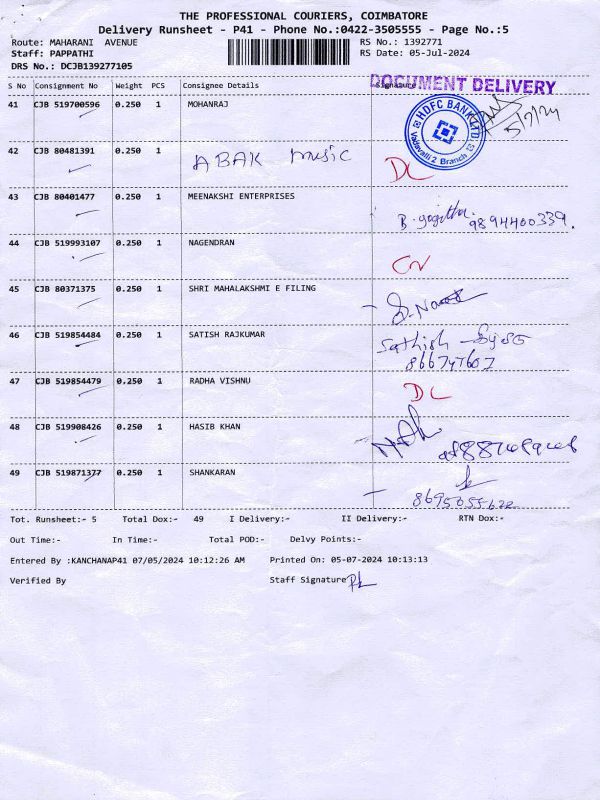 THE PROFESSIONAL COURIERS, COIMBATORE
Delivery Runsheet - P41 - Phone No.:0422-3505555 - Page No.:5
Route: MAHARANI AVENUE RS No.: 1392771
Staff: PAPPATHI RS Date: 05-Jul-2024
DRS No.: DCJB139277105
DOCUMENT DELIVERY
S No Consignment No Weight PCS Consignee Details Signature
41 CJB 519700596 0.250 1 MOHANRAJ
HDFC BANK LTD
Vadavalli 2 Branch
5/7/24
42 CJB 80481391 0.250 1 ABAK music DL
43 CJB 80401477 0.250 1 MEENAKSHI ENTERPRISES
9894400339.
44 CJB 519993107 0.250 1 NAGENDRAN
45 CJB 80371375 0.250 1 SHRI MAHALAKSHMI E FILING
46 CJB 519854484 0.250 1 SATISH RAJKUMAR Sathish
47 CJB 519854479 0.250 1 RADHA VISHNU DL
48 CJB 519908426 0.250 1 HASIB KHAN
49 CJB 519871377 0.250 1 SHANKARAN
Tot. Runsheet:- 5 Total Dox:- 49 I Delivery:- II Delivery:- RTN Dox:-
Out Time:- In Time:- Total POD:- Delvy Points:-
Entered By :KANCHANAP41 07/05/2024 10:12:26 AM Printed On: 05-07-2024 10:13:13
Verified By Staff Signature